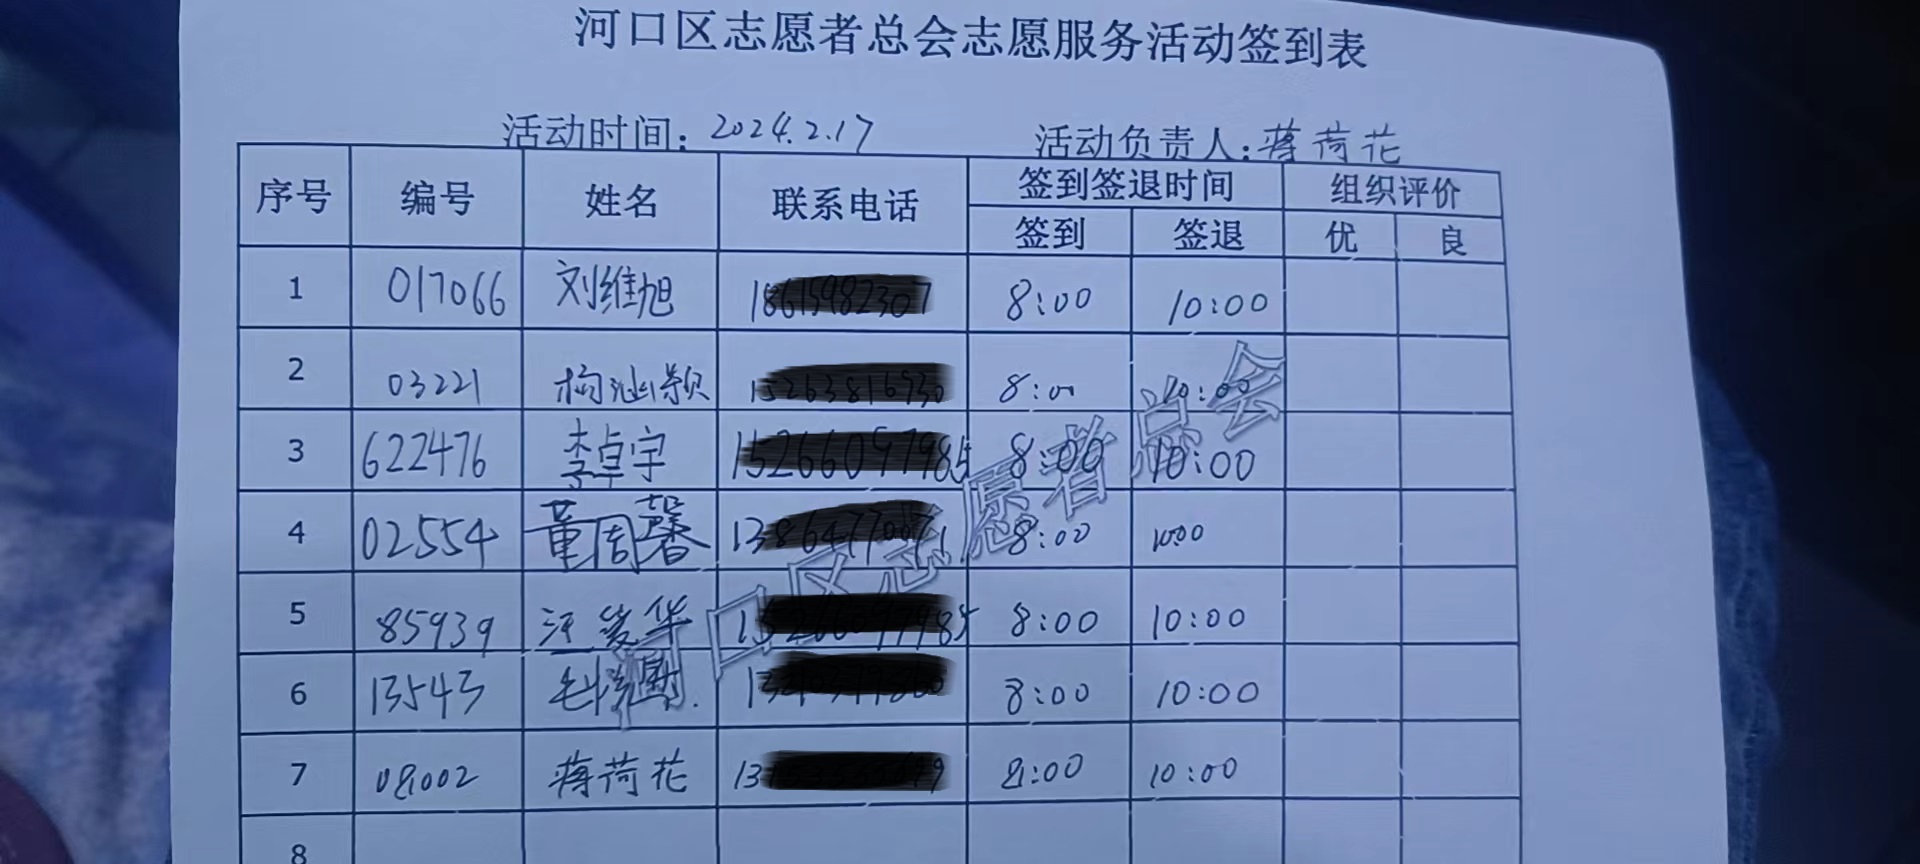 河口区志愿者总会志愿服务活动签到表
活动时间: 2024.2.17 活动负责人: 蒋荷花
序号 编号 姓名 联系电话 签到签退时间 组织评价
签到 签退 优 良
1 017066 刘维旭 8:00 10:00
2 03221 8:00 10:00
3 622476 李卓宇 8:00 10:00
4 02554 董周馨 8:00 10:00
5 85939 8:00 10:00
6 13543 8:00 10:00
7 08002 蒋荷花 8:00 10:00
8
河口区志愿者总会